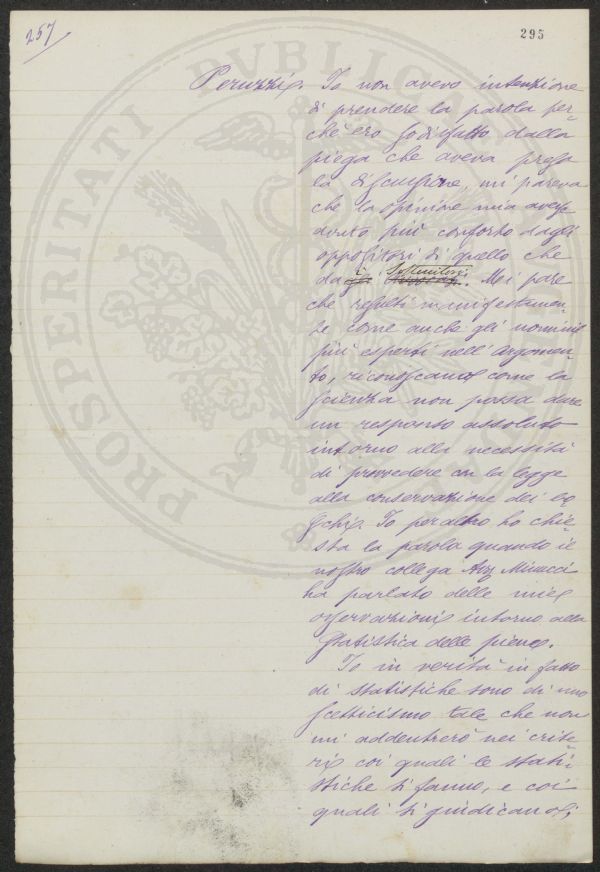 257
295
Peruzzi. Io non avevo intenzione
di prendere la parola per-
chè ero sodisfatto dalla
piega che aveva presa
la discussione, mi pareva
che la opinione mia avesse
avuto più conforto dagli
oppositori di quello che
dai sostenitori. Mei pare
che resulti manifestamen-
te come anche gli uomini
più esperti nell'argomen-
to, riconoscano come la
scienza non possa dare
un responso assoluto
intorno alla necessità
di provvedere con la legge
alla conservazione dei bo-
schi. Io peraltro ho chie-
sta la parola quando il
nostro collega Avv Minucci
ha parlato delle mie
osservazioni intorno alla
statistica delle piene.
Io in verità in fatto
di statistiche sono di uno
scetticismo tale che non
mi addentrerò nei crite-
ri coi quali le stati-
stiche si fanno, e coi
quali si giudicano;
PROSPERITATI PVBLICAE